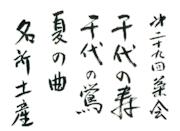 第二十九回箏会
千代の寿
千代の鶯
夏の曲
名所土産